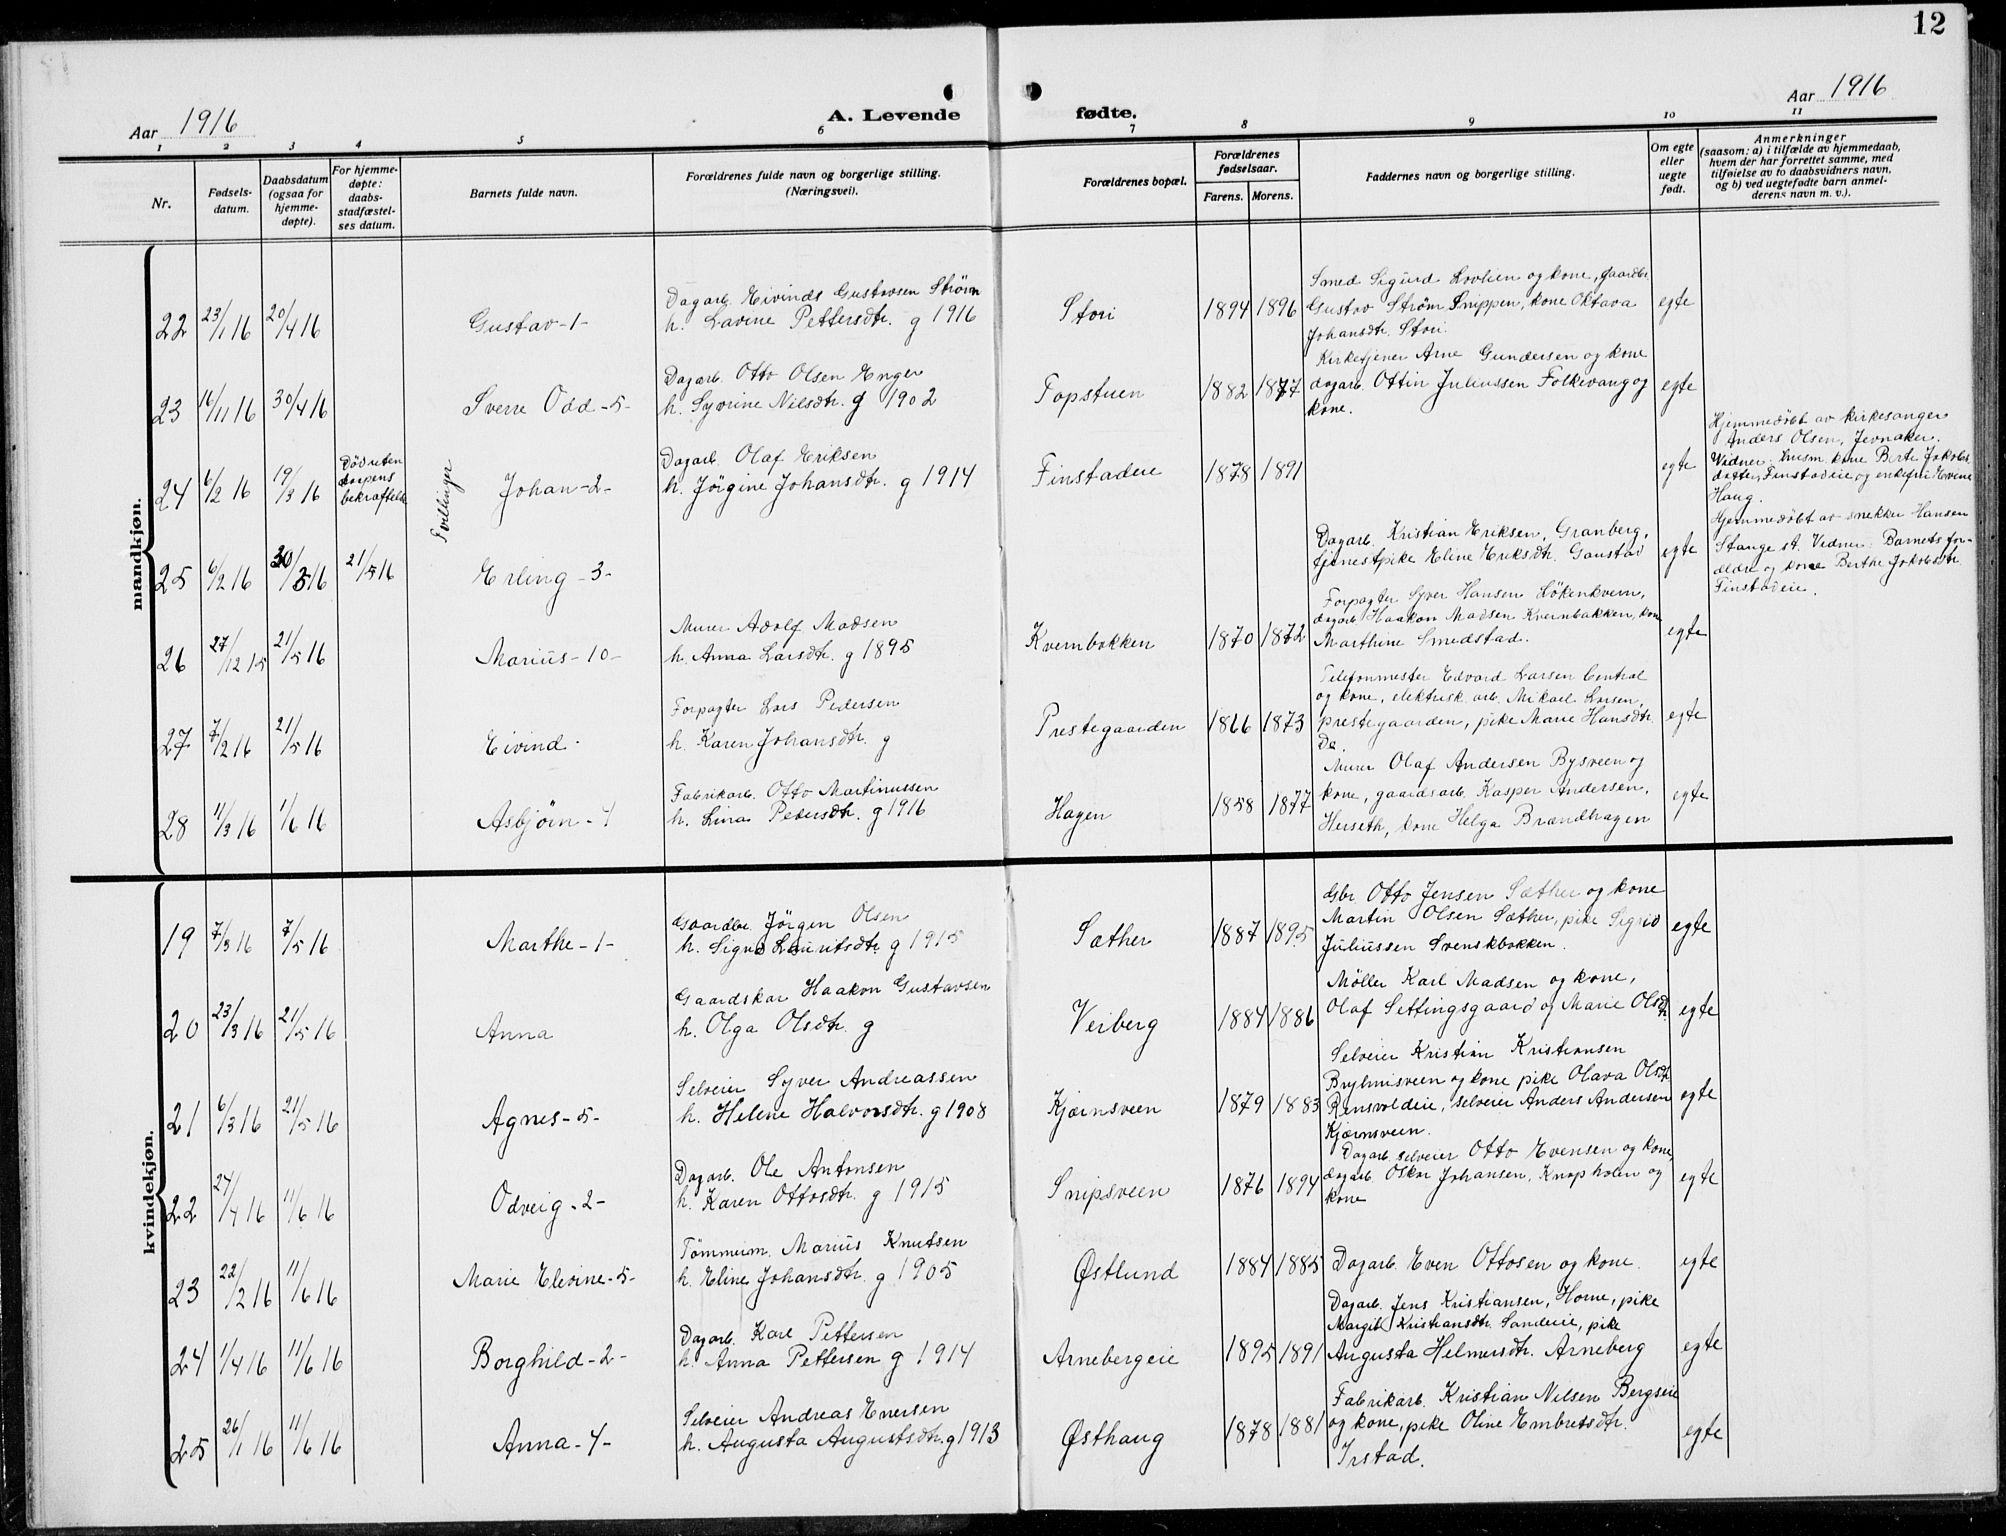 12
Aar 1916
A. Levende
fødte.
Aar 1916
1 2 3 4 5 6 7 8 9 10 11
Nr.
Fødsels-
datum.
Daabsdatum
(ogsaa for
hjemme-
døpte).
For hjemme-
døpte:
daabs-
stadfæstel-
ses datum.
Barnets fulde navn.
Forældrenes fulde navn og borgerlige stilling.
(Næringsvei).
Forældrenes bopæl.
Forældrenes
fødselsaar.
Farens. Morens.
Faddernes navn og borgerlige stilling.
Om egte
eller
uegte
født.
Anmerkninger
(saasom: a) i tilfælde av hjemmedaab,
hvem der har forrettet samme, med
tilføielse av to daabsvidners navn,
og b) ved uegtefødte barn anmel-
derens navn m. v.).
mandkjøn.
22 23/1 16 20/4 16 Gustav -1-
Dagarb. Eivinds Gustavsen Strøm
h. Lavine Pettersdtr. g 1916
Stori 1894 1896
Smed Sigurd Lovlien og kone, gaardbr
Gustav Strøm Snippen, kone Oktava
Johansdtr. Stori.
egte
23 16/11 16 30/4 16 Sverre Odd -5-
Dagarb. Otto Olsen Enger
h. Syvrine Nilsdtr. g 1902
Topstuen 1882 1877
Kirketjener Arne Gundersen og kone
dagarb. Ottin Juliussen Folkevang og
kone.
egte
24 6/2 16 19/3 16
Död uten
daapens
bekræftelse
Tvillinger
Johan -2-
Dagarb. Olaf Eriksen
h. Jörgine Johansdtr. g 1914
Finstadeie 1878 1891
egte
Hjemmedöbt av kirkesanger
Anders Olsen, Jevnaker.
Vidner: husm. kone Berte Jakobs
datter, Finstadeie og enkefru
Haug.
25 6/2 16 30/3 16 21/5 16 Erling -3-
Dagarb. Kristian Eriksen, Granberg,
tjenestpike Eline Eriksdtr. Gaustad
egte
Hjemmedöbt av snekker Hansen
Stange st. Vidner: Barnets for-
ældre og kone Berthe Jakobsdtr.
Finstadeie.
26 27/12 15 21/5 16 Marius -10-
Murer Adolf Madsen
h. Anna Larsdtr. g 1895
Kvernbakken 1870 1872
Forpagter Syver Hansen Hökenkvern,
dagarb. Haakon Madsen Kvernbakken, kone
Marthine Smedstad.
egte
27 7/2 16 21/5 16 Eivind -
Forpagter Lars Pedersen
h. Karen Johansdtr. g
Prestegaarden 1866 1873
Telefonmester Edvard Larsen Central
og kone, elektrisk arb. Mikael Larsen,
prestegaarden, pike Marie Hansdtr.
Do.
egte
28 11/3 16 1/6 16 Asbjørn -4
Fabrikarb. Otto Martinussen
h. Lina Pedersdtr. g 1916
Hagen 1858 1877
Murer Olaf Andersen Bysveen og
kone, gaardsarb. Kasper Andersen,
Herseth, kone Helga Brændhagen
egte
kvindekjøn.
19 7/3 16 7/5 16 Marthe -1-
Gaardbr. Jörgen Olsen
h. Signe Lauritsdtr. g 1915
Sæther 1887 1895
Gbr. Otto Jensen Sæther og kone
Martin Olsen Sæther, pike Sigrid
Juliussen Svenskbakken.
egte
20 23/3 16 21/5 16 Anna
Gaardskar Haakon Gustavsen
h. Olga Olsdtr. g
Veiberg 1884 1886
Møller Karl Madsen og kone,
Olaf Settingsgaard og Marie Olsdtr.
egte
21 6/3 16 21/5 16 Agnes -5-
Selveier Syver Andreassen
h. Helene Halvorsdtr. g 1908
Kjærnsveen 1879 1883
Selveier Kristian Kristiansen
Bryhnisveen og kone pike Olava Olsdtr.
Rensvoldeie, selveier Anders Andersen
Kjærnsveen.
egte
22 24/4 16 11/6 16 Odveig -2-
Dagarb. Ole Antonsen
h. Karen Ottosdtr. g 1915
Snipsveen 1876 1894
Dagarb. selveier Otto Evensen og kone,
dagarb. Oskar Johansen, Knapholen og
kone
egte
23 22/2 16 11/6 16 Marie Elevine -5-
Tömmerm. Marius Knutsen
h. Eline Johansdtr. g 1905
Østlund 1884 1885
Dagarb. Even Ottosen og kone.
egte
24 1/4 16 11/6 16 Borghild -2-
Dagarb. Karl Pettersen
h. Anna Pettersen g 1914
Arnebergeie 1895 1891
Dagarb. Jens Kristiansen, Horne, pike
Margit Kristiansdtr. Sandeie, pike
Augusta Helmersdtr. Arneberg
egte
25 26/1 16 11/6 16 Anna -4-
Selveier Andreas Enersen
h. Augusta Augustsdtr. g 1913
Østhaug 1878 1881
Fabrikarb. Kristian Nilsen Bergseie
og kone, pike Oline Embretsdtr.
Irstad.
egte